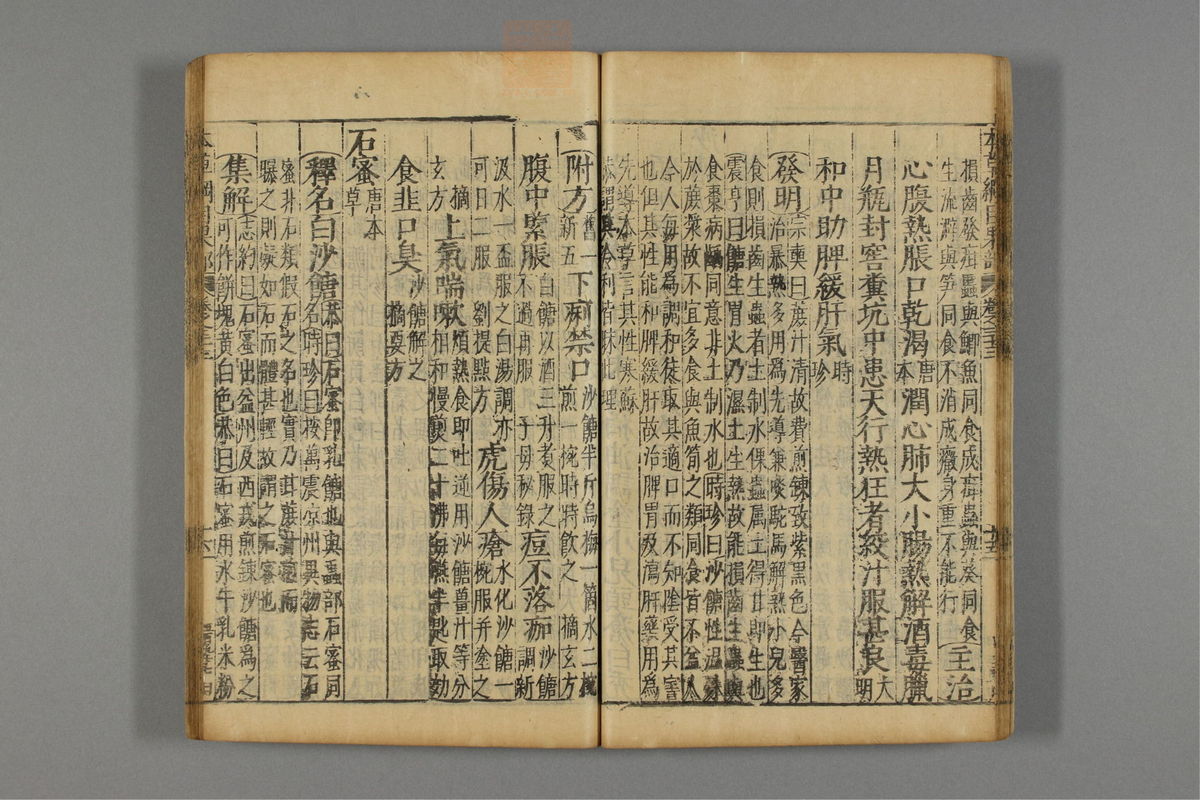 損齒發疳䘌與鯽魚同食成疳蟲與葵同食
生流澼與笋同食不消成癥身重不能行
主治
心腹熱脹口乾渴唐本潤心肺大小腸熱解酒毒臘
月瓶封窖糞坑中患天行熱狂者絞汁服甚良大明
和中助脾緩肝氣時珍
發明宗奭曰蔗汁清故費煎鍊致紫黑色今醫家
治暴熱多用爲先導兼啖駝馬解熱小兒多
食則損齒生蟲者土制水倮蟲屬土得甘即生也
震亨曰糖生胃火乃濕土生熱故能損齒生蟲與
食棗病齲同意非土制水也時珍曰沙糖性溫殊
於蔗漿故不宜多食與魚筍之類同食皆不益人
今人每用爲調和徒取其適口而不知陰受其害
也但其性能和脾緩肝故治脾胃及瀉肝藥用爲
先導本草言其性寒蘇
恭謂其冷利皆昧此理
附方舊一新五下痢禁口沙糖半斤烏梅一箇水二椀
煎一椀時時飲之 摘玄方
腹中緊脹白糖以酒三升煮服之
不過再服 子母秘錄
痘不落痂沙糖調新
汲水一盃服之白湯調亦
可日二服 劉提點方
虎傷人瘡水化沙糖一
椀服并塗之
摘玄方
上氣喘嗽煩熱食即吐逆用沙糖薑汁等分
相和慢煎二十沸每嚥半匙取効
食韭口臭沙糖解之
摘要方
石蜜唐本草
釋名白沙糖恭曰石蜜即乳糖也與蟲部石蜜同
名時珍曰按萬震凉州異物志云石
蜜非石類假石之名也實乃甘蔗汁煎而
曝之則凝如石而體甚輕故謂之石蜜也
集解志約曰石蜜出益州及西戎煎鍊沙糖爲之
可作餅塊黄白色恭曰石蜜用水牛乳米粉